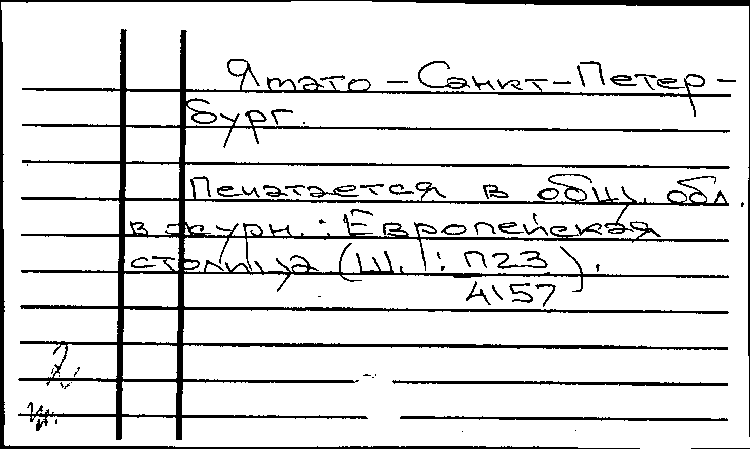 Ятато - Санкт-Петер-
бург.
Печатается в общ. обл.
в журн.: Европейская
столица (Ш.: П23
4157).